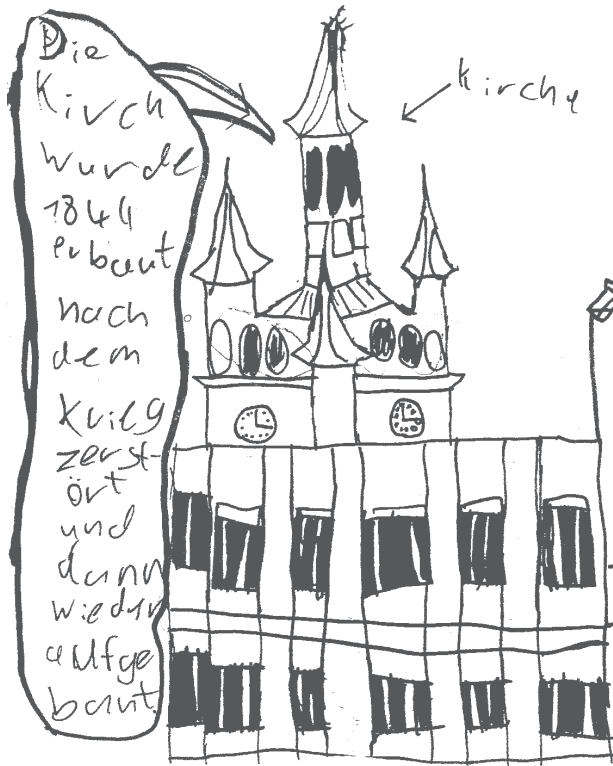 Die
Kirch
wurde
1844
erbaut
nach
dem
Krieg
zerst-
ört
und
dann
wieder
aufge
baut
Kirche